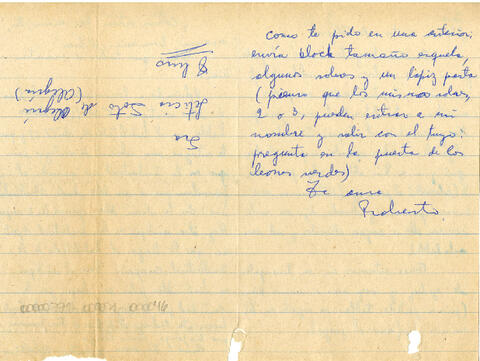 como te pido en una anterior:
envía block tamaño esquela,
algunos sobres y un lápiz pasta
(pienso que los mismos sobres,
2 o 3, pueden entrar a mi
nombre y salir con el tuyo:
pregunta en la puerta de los
leones verdes)
Te ama
Roberto
Sra
Leticia Soto de Alegría
(Alegría)